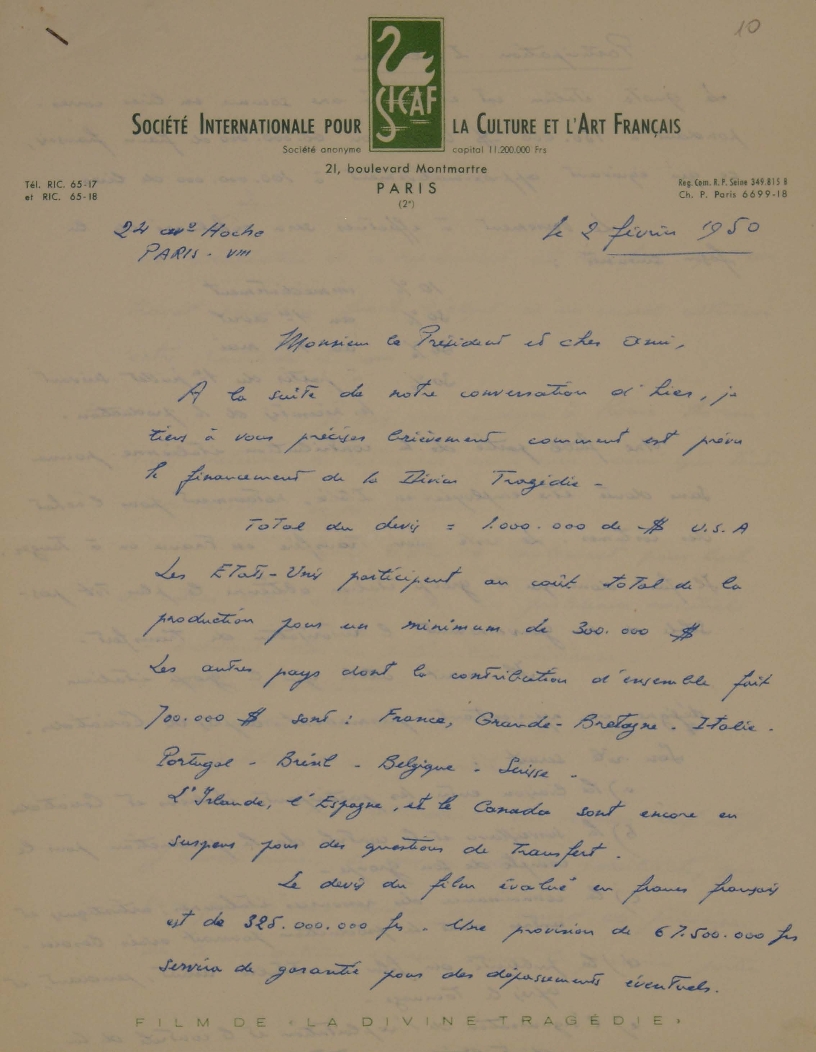 10
SICAF
SOCIÉTÉ INTERNATIONALE POUR LA CULTURE ET L'ART FRANÇAIS
Société anonyme capital 11.200.000 Frs
21, boulevard Montmartre
PARIS
(2e)
Tél. RIC. 65-17
et RIC. 65-18
Reg. Com. R. P. Seine 349.815 B
Ch. P. Paris 6699-18
24 ave Hoche
PARIS - VIII
le 2 février 1950
Monsieur le Président et cher ami,
A la suite de notre conversation d'hier, je
tiens à vous préciser brièvement comment est prévu
le financement de la Divine Tragédie -
Total du devis = 1.000.000 de $ U.S.A
Les Etats-Unis participent au coût total de la
production pour un minimum de 300.000 $
Les autres pays dont la contribution d'ensemble fait
700.000 $ sont : France, Grande-Bretagne - Italie -
Portugal - Brésil - Belgique - Suisse -
L'Irlande, l'Espagne, et le Canada sont encore en
suspens pour des questions de Transfert.
Le devis du film évalué en francs français
est de 325.000.000 frs - Une provision de 67.500.000 frs
servira de garantie pour des dépassements éventuels.
FILM DE « LA DIVINE TRAGÉDIE »